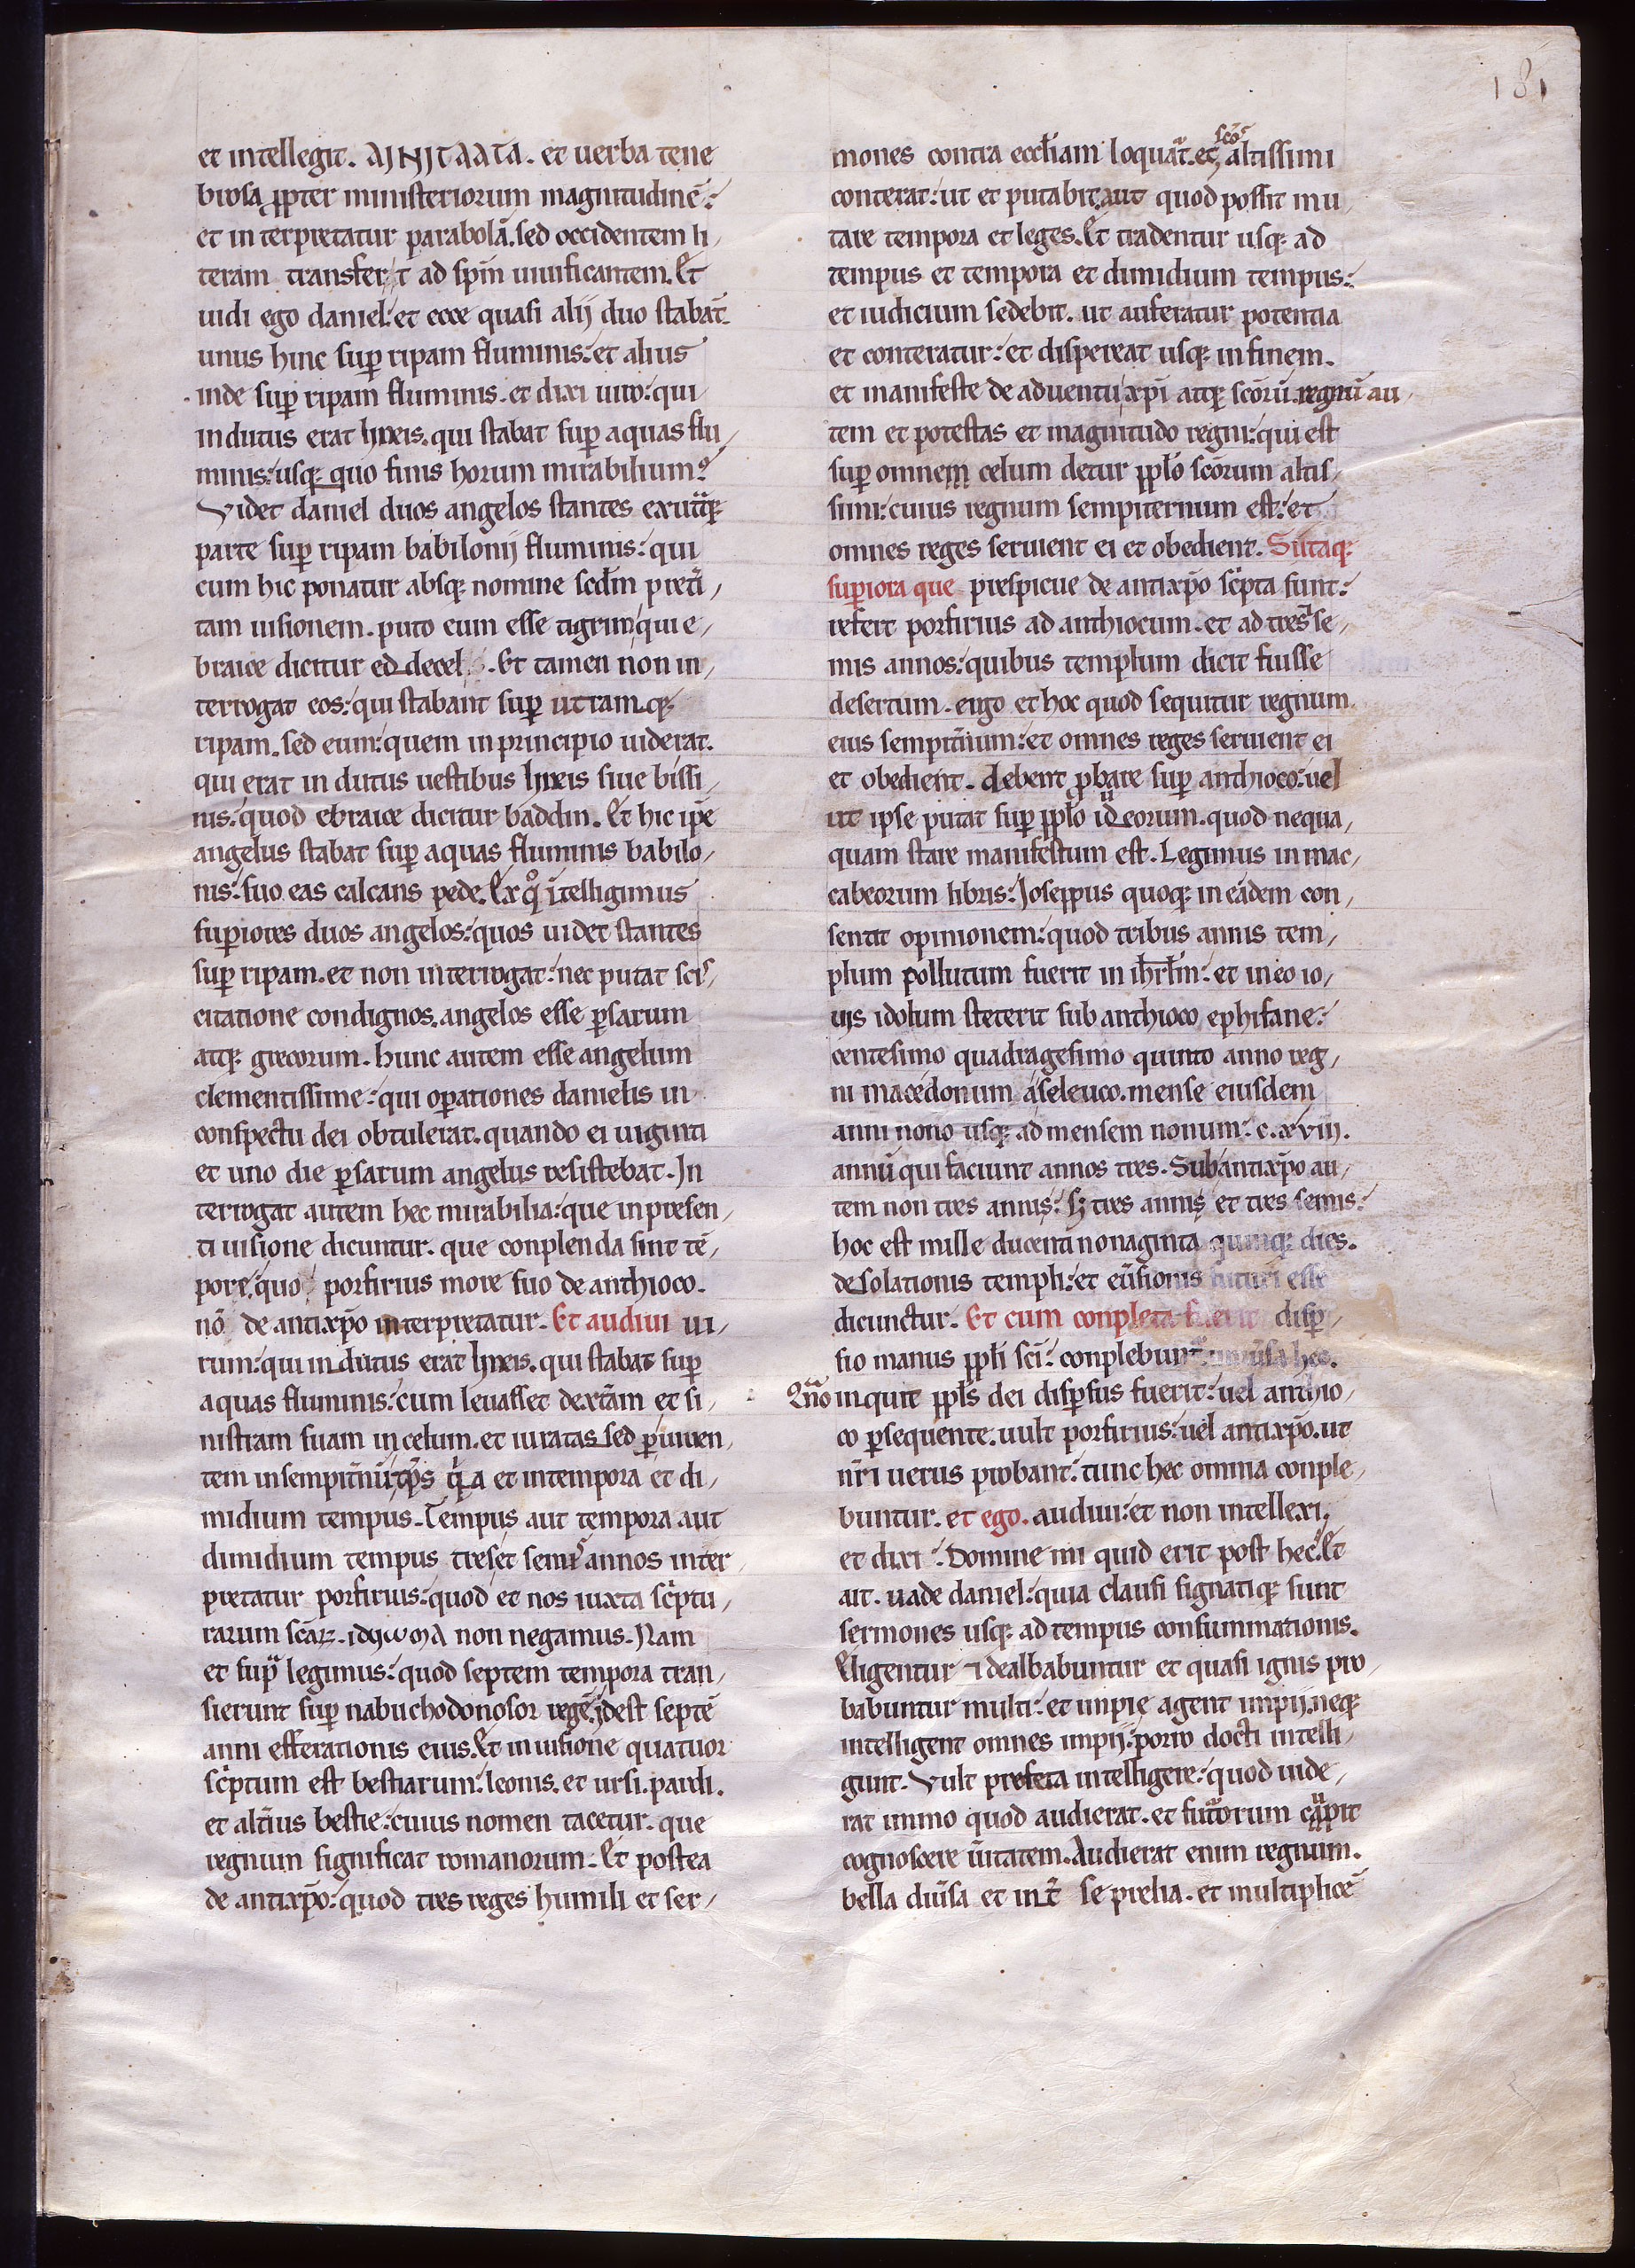 181
et intellegit. AJNJTAATA. et uerba tene
brosa ꝓpter ministeriorum magnitudinē:
et in terpretatur parabolā. sed occidentem li,
teram transfert ad sp̄m uiuificantem. Et
uidi ego daniel: et ecce quasi alij duo stabāt.
unus hinc suꝑ ripam fluminis: et alius
inde suꝑ ripam fluminis. et dixi uiro: qui
indutus erat lineis. qui stabat suꝑ aquas flu,
minis: usq; quo finis horum mirabilium?
Videt daniel duos angelos stantes ex utͣq;
parte suꝑ ripam babilonij fluminis: qui
cum hic ponatur absq; nomine scd̄m preti,
tam uisionem. puto eum esse tigrim qui e,
braice dicitur eddecel. Et tamen non in,
terrogat eos: qui stabant suꝑ utramq;
ripam. sed eum: quem in principio uiderat.
qui erat in dutus uestibus lineis siue bissi,
nis: quod ebraice dicitur baddin. Et hic ip̄e
angelus stabat suꝑ aquas fluminis babilo,
nis: suo eas calcans pede. Ex qͦ ītelligimus
suꝑiores duos angelos: quos uidet stantes
suꝑ ripam. et non interrogat: nec putat scis,
citatione condignos. angelos esse ꝑsarum
atq; grecorum. hunc autem esse angelum
clementissime: qui oꝑationes danielis in
conspectu dei obtulerat. quando ei uiginti
et uno die ꝑsarum angelus resistebat. In
terrogat autem hec mirabilia: que in presen,
ti uisione dicuntur. que conplenda sint tē,
pore, quo porfirius more suo de anthioco.
nō de antixp̄o interpretatur. Et audiui ui,
rum: qui indutus erat lineis. qui stabat suꝑ
aquas fluminis: cum leuasset dextām et si,
nistram suam in celum. et iuratas sed ꝑ uiuen,
tem in sempit̄nū: tp̄s qͥa et in tempora et di,
midium tempus. Tempus aut tempora aut
dimidium tempus tres et semis annos inter,
pretatur porfirius: quod et nos iuxta scͥptu,
rarum scāꝝ. idyωma non negamus. Nam
et supͣ legimus: quod septem tempora tran,
sierunt suꝑ nabuchodonosor regē. idest septē
anni efferationis eius. Et in uisione quatuor
scͥptum est bestiarum: leonis. et ursi. pardi.
et alt̄ius bestie: cuius nomen tacetur. que
regnum significat romanorum. Et postea
de antixp̄o: quod tres reges humili et ser,
mones contra eccl̄iam loquāt. et scōs altissimi
conterat: ut et putabit. aut quod possit mu,
tare tempora et leges. Et tradentur usq; ad
tempus et tempora et dimidium tempus:
et iudicium sedebit. ut auferatur potentia
et conteratur: et dispereat usq; in finem.
et manifeste de aduentu xp̄i atq; scōrū. regnū au,
tem et potestas et magnitudo regni: qui est
suꝑ omnem celum detur ppl̄o scōrum altis,
simi: cuius regnum sempiternum est: et
omnes reges seruient ei et obedient. Siitaq;
suꝑiora que prespicue de antixp̄o scͥpta sunt:
refert porfirius ad anthiocum. et ad tres se,
mis annos: quibus templum dicit fuisse
desertum. ergo et hoc quod sequitur regnum
eius sempit̄num: et omnes reges seruient ei
et obedient. debent ꝓbare suꝑ anthioco: uel
ut ipse putat suꝑ ppl̄o iudeorum. quod nequa,
quam stare manifestum est. Legimus in mac,
cabeorum libris: Joseppus quoq; in eādem con,
sentit opinionem: quod tribus annis tem,
plum pollutum fuerit in ihrl̄m: et in eo io,
uis idolum steterit sub anthioco ephifane:
centesimo quadragesimo quinto anno reg,
ni macedonum a seleuco. mense eiusdem
anni nono usq; ad mensem nonum: c. xviij.
annū qui faciunt annos tres. Sub antixp̄o au,
tem non tres annis: sꝫ tres annis et tres semis:
hoc est mille ducenti nonaginta quinq; dies.
desolationis templi: et eūsionis futuri esse
dicunctur. Et cum conpleta fuerit disꝑ,
sio manus ppl̄i sc̄i: conplebuntͬ uniūsa hec.
Qn̄o inquit ppl̄s dei disꝑsus fuerit: uel anthio,
co ꝑsequente. uult porfirius: uel antixp̄o. ut
nr̄i uerus probant: tunc hec omnia conple,
buntur. et ego. audiui: et non intellexi.
et dixi: Domine mi quid erit post hec? Et
ait. uade daniel: quia clausi signatiq; sunt
sermones usq; ad tempus consummationis.
Eligentur ⁊ dealbabuntur et quasi ignis pro,
babuntur multi: et impię agent impij. neq;
intelligent omnes impij: porro docti intelli,
gunt. Vult profeta intelligere: quod uide,
rat immo quod audierat. et futurorum cupit
cognoscere ūitatem. Audierat enim regnum.
bella diūsa et int̄ se prelia. et multiplicē